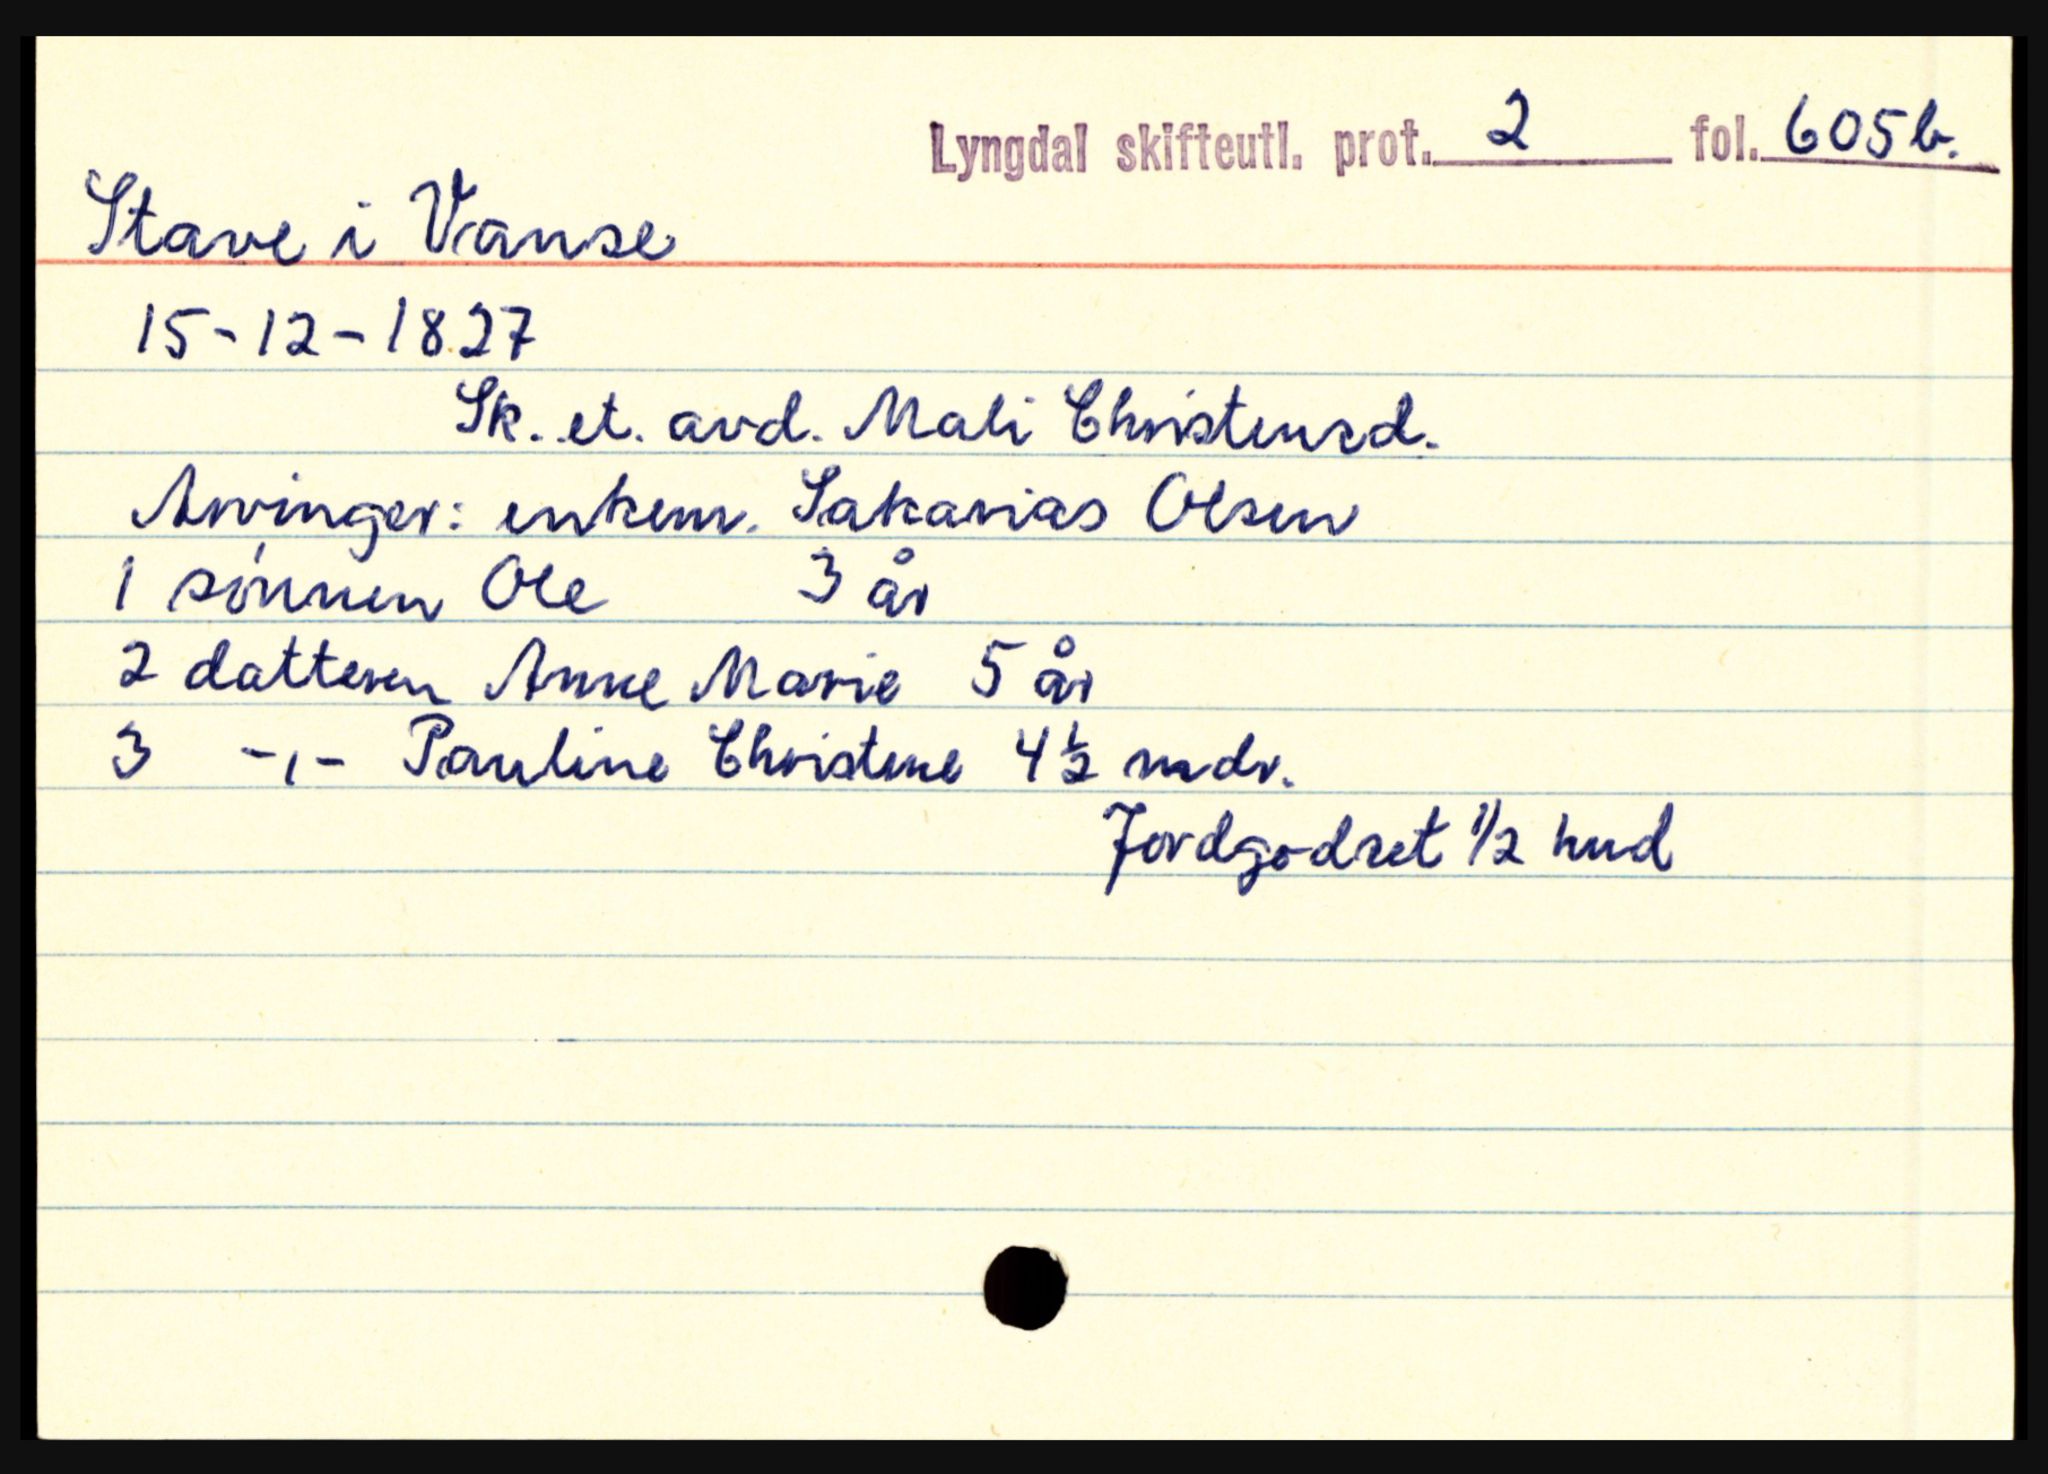 Lyngdal skifteutl. prot. 2 fol. 605b.
Stave i Vanse
15-12-1827
Sk. et. avd. Mali Christensd.
Arvinger: enkem. Sakarias Olsen
1 sønnen Ole 3 år
2 datteren Anne Marie 5 år
3 -,- Pauline Christine 4 1/2 mdr.
Jordgodset 1/2 hud